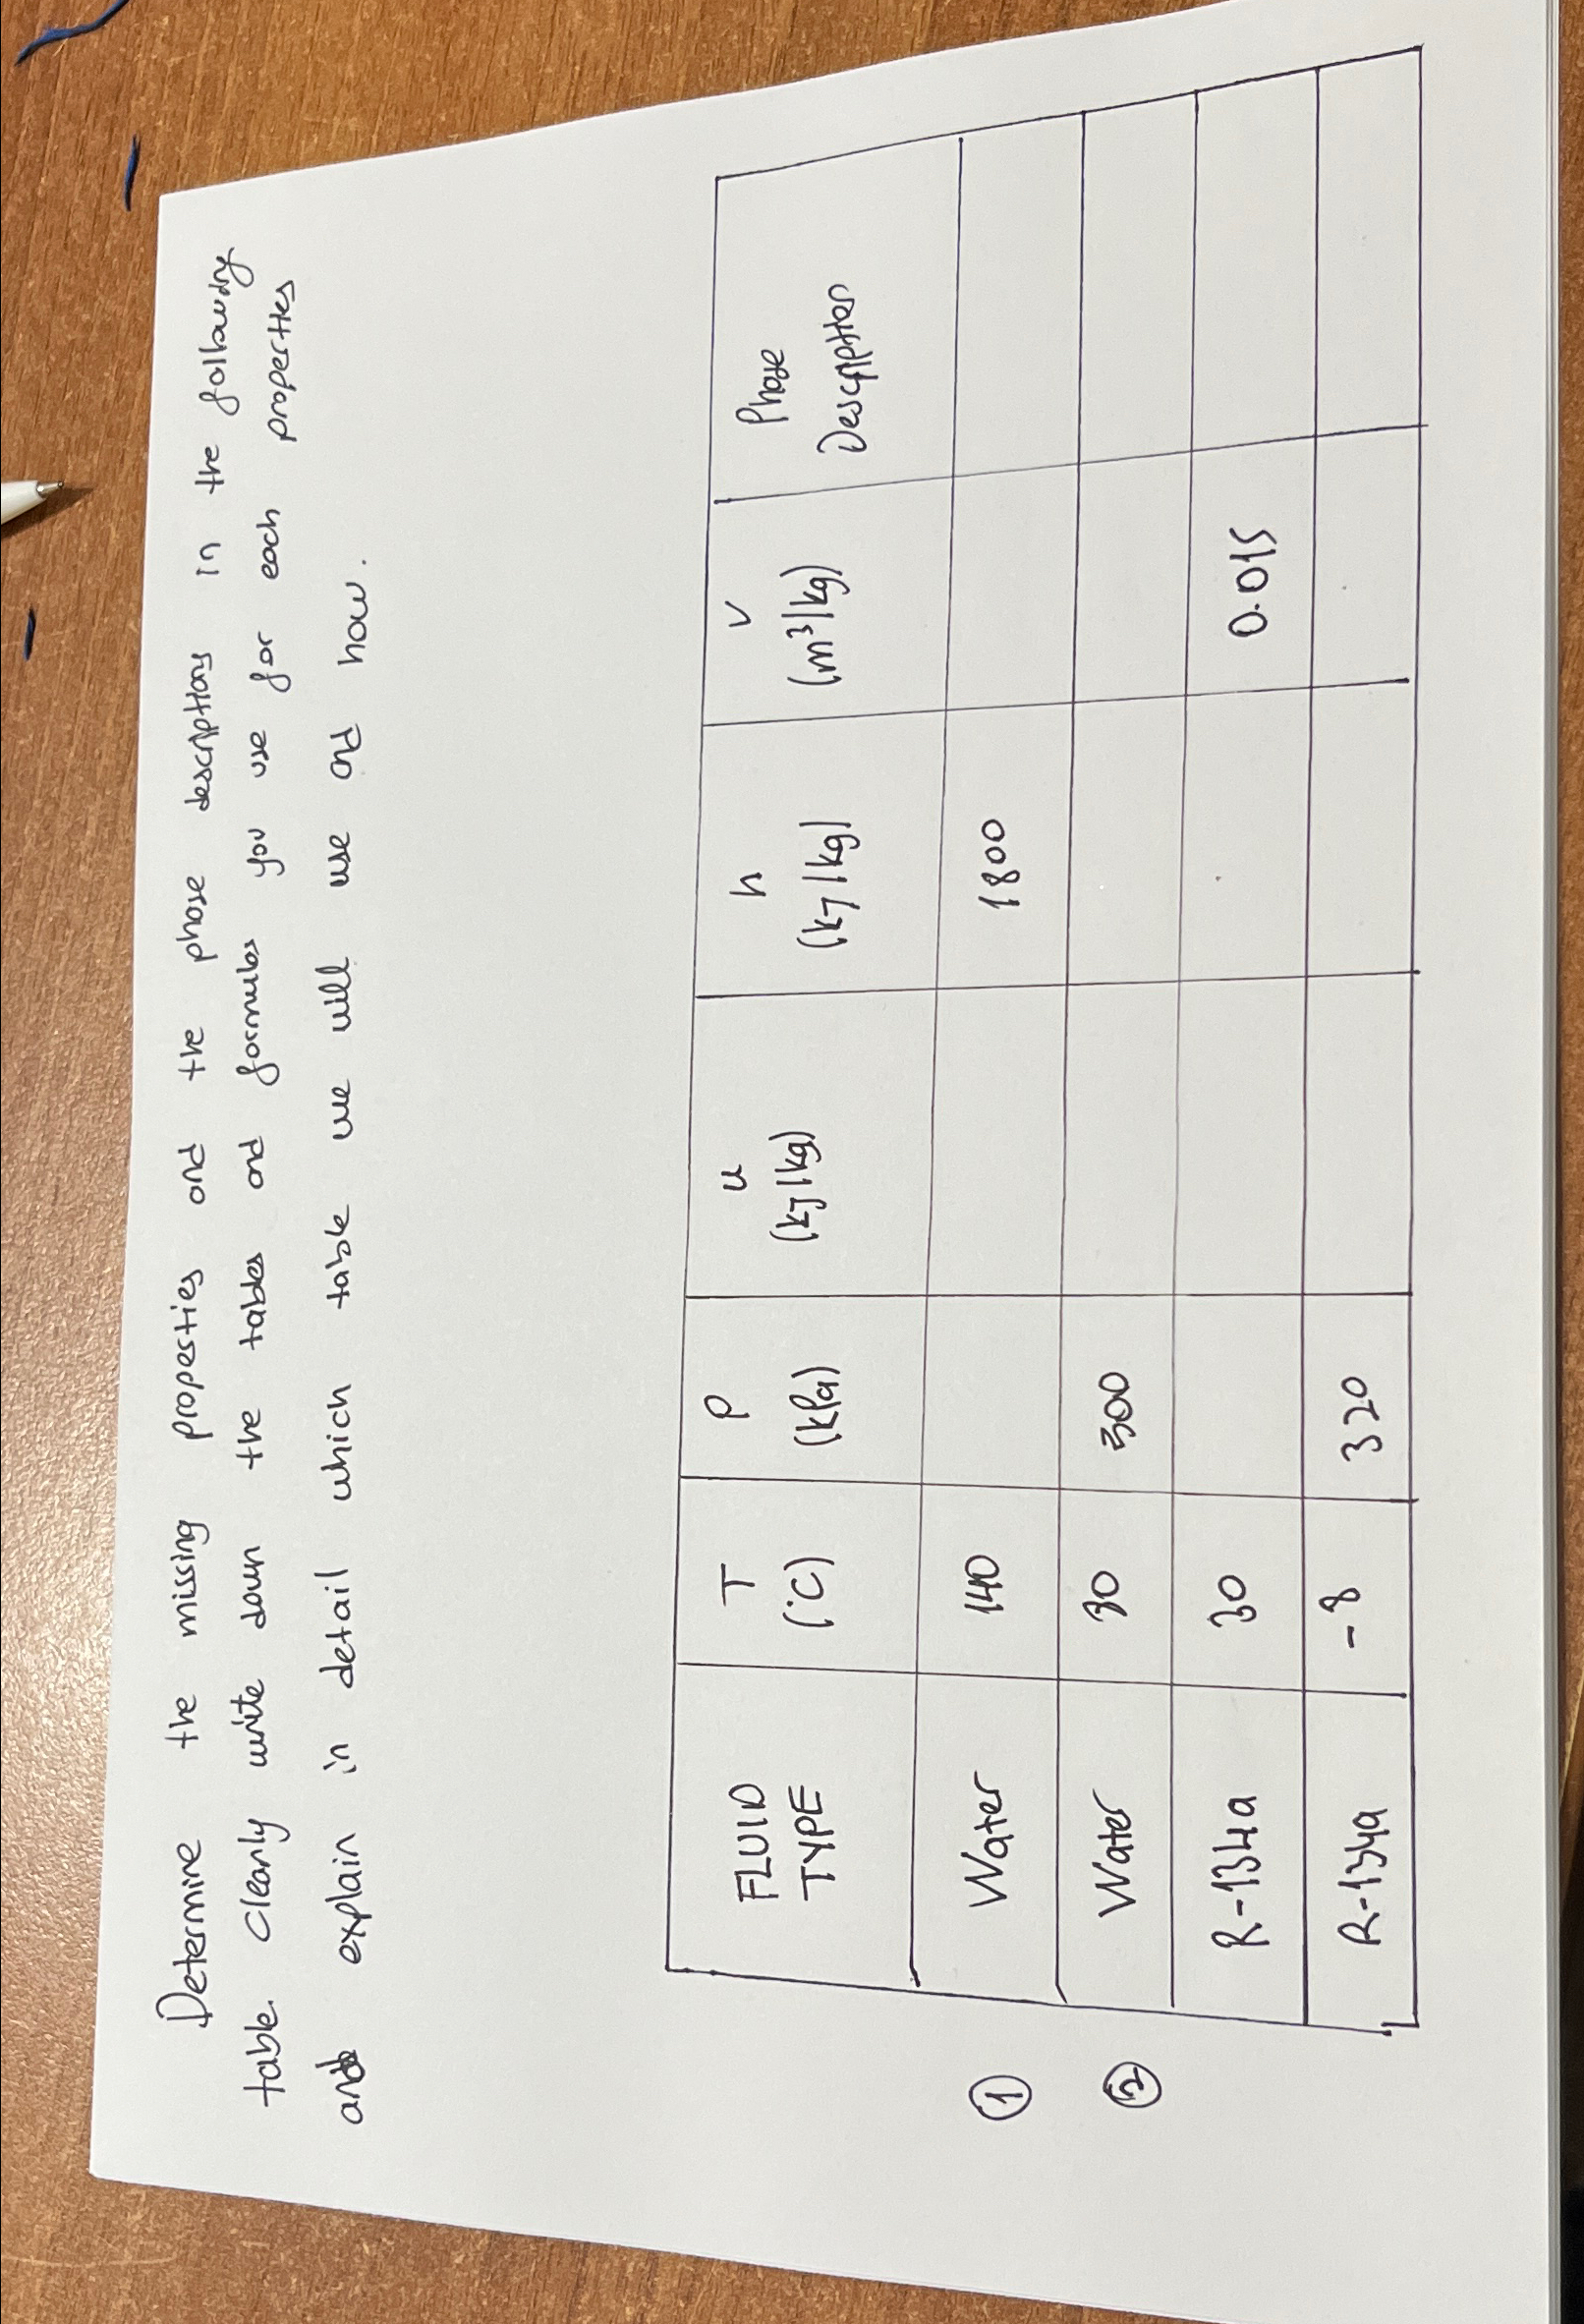 Determine the missing properties and the phase descriptions in the following
table. Clearly write down the tables and formulas you use for each properties
and explain in detail which table we will use and how.
FLUID TYPE T (°C) P (kPa) u (kJ/kg) h (kJ/kg) v (m³/kg) Phase Description
① Water 140 1800
② Water 30 300
R-134a 30 0.015
R-134a -8 320